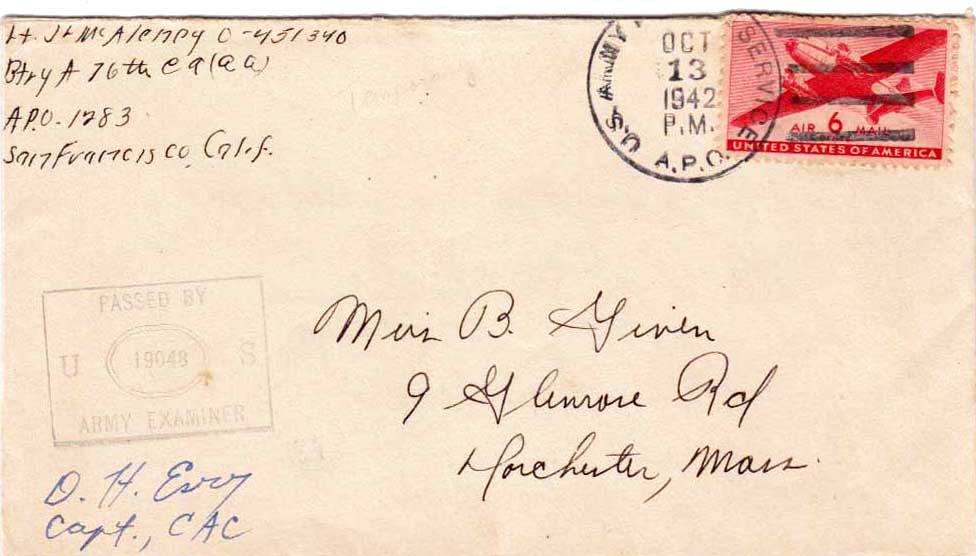 Lt. J H McAleney O-451340
Btry A 76th CA (aa)
A.P.O. - 1283
San Francisco, Calif.
U.S. ARMY SERVICE A.P.O.
OCT
13
1942
P.M.
AIR 6¢ MAIL
UNITED STATES OF AMERICA
PASSED BY
U 19048 S
ARMY EXAMINER
Miss B. Given
9 Glenrose Rd
Dorchester, Mass.
O. H.
Capt., CAC